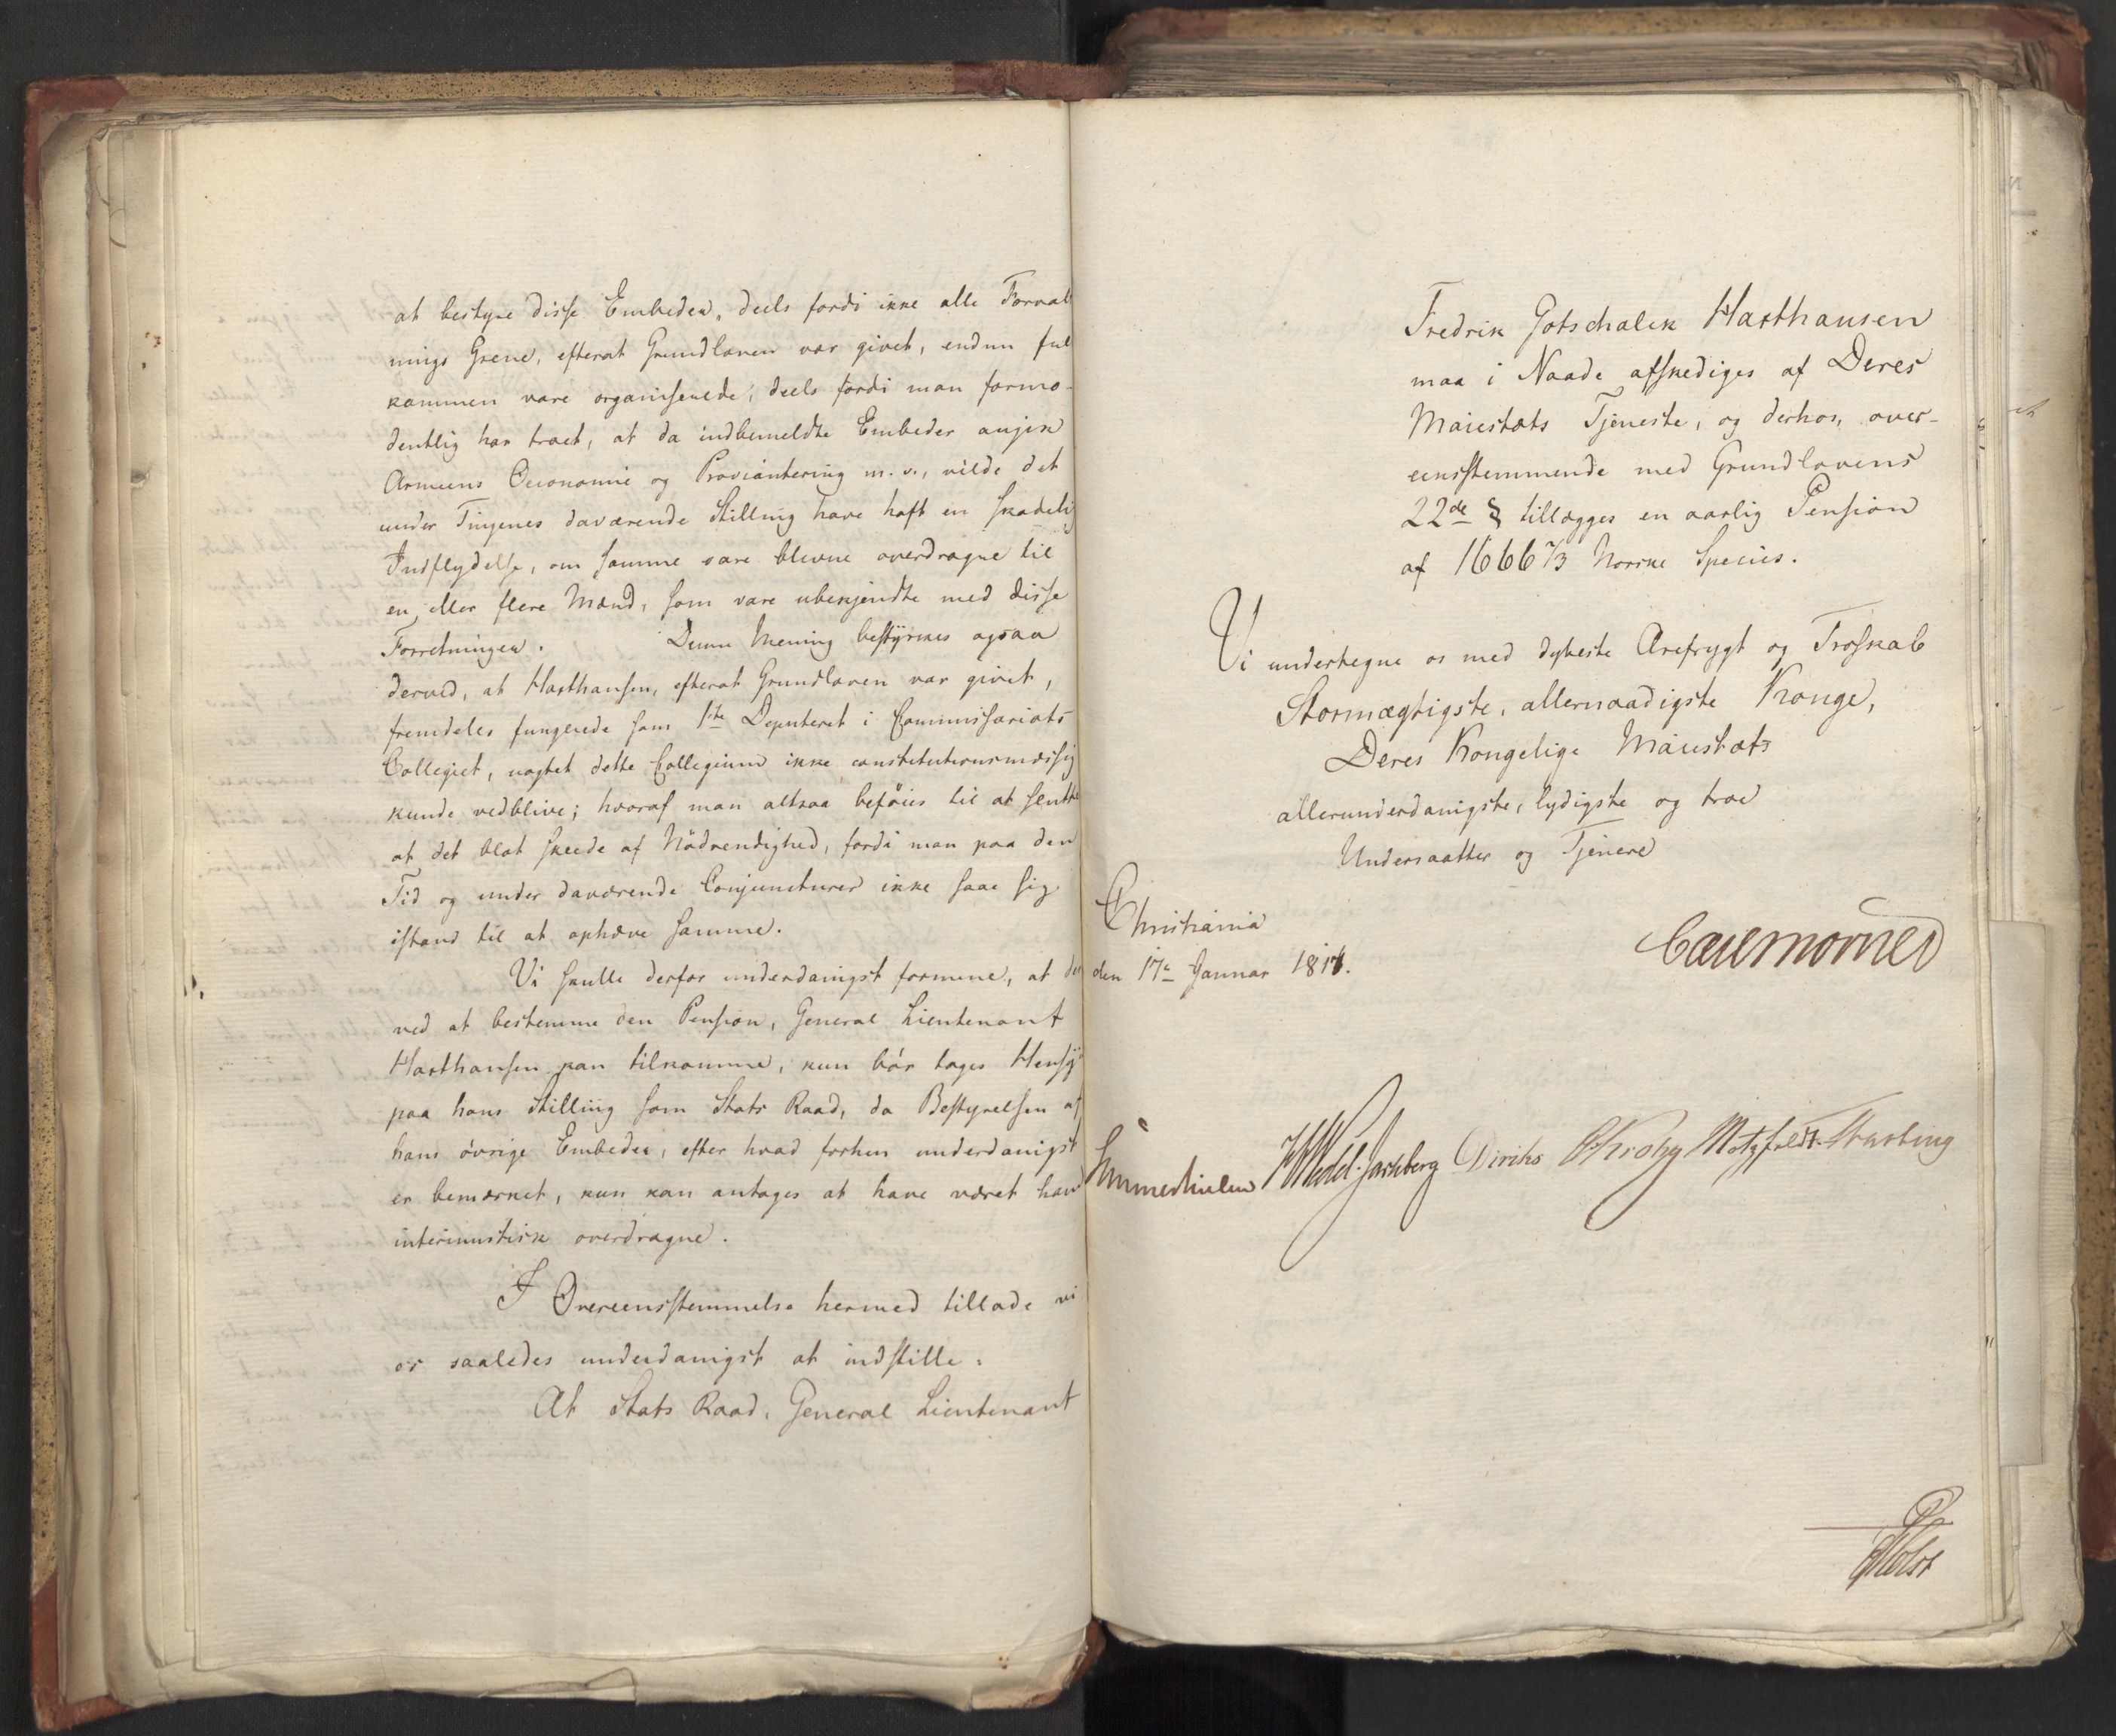 at bestyre disse Embeder, deels fordi ikke alle Forval
nings Grene, efterat Grundloven var givet, endnu ful
kommen vare organiserede; deels fordi man formo-
dentlig har troet, at da indbemeldte Embeder angik
Armeens Oeconomie og Proviantering m. v., vilde det
under Tingenes daværende Stilling have haft en skadelig
Indflydelse, om samme vare blevne overdragne til
en eller flere Mænd, som vare ubekjendte med disse
Forretninger. Denne Mening bestyrkes ogsaa
derved, at Haxthausen, efterat Grundloven var givet,
fremdeles fungerede som 1ste Deputeret i Commissariats
Collegiet, uagtet dette Collegium ikke constitutionsmæssig
kunde vedblive; hvoraf man altsaa beføies til at slutte
at det blot skeede af Nödvendighed, fordi man paa den
Tid og under daværende Conjuncturer ikke saae sig
istand til at ophæve samme.
Vi skulle derfor underdanigst formene, at der
ved at bestemme den Pension, General Lieutenant
Haxthausen kan tilkomme, kun bör tages Hensyn
paa hans Stilling som Stats Raad, da Bestyrelsen af
hans övrige Embeder, efter hvad forhen underdanigst
er bemærket, kun kan antages at have været ham
interimistisk overdragne.
I Overeensstemmelse hermed tillade vi
os saaledes underdanigst at indstille:
At Stats Raad, General Lieutenant
Fredrik Gotschalck Haxthausen
maa i Naade afskediges af Deres
Maiestæts Tjeneste, og derhos, over-
eensstemmende med Grundlovens
22de § tillægges en aarlig Pension
af 1666 2/3 Norske Species.
Vi undertegne os med dybeste Ærefrygt og Troskab
Stormægtigste, allernaadigste Konge,
Deres Kongelige Maiestæts
allerunderdanigste, lydigste og troe
Undersaatter og Tjenere
Christiania
den 17e Januar 1817.
Carl Mörner
Sommerhielm HWedel-Jarlsberg Diriks CKrohg Motzfeldt Fasting
Holst